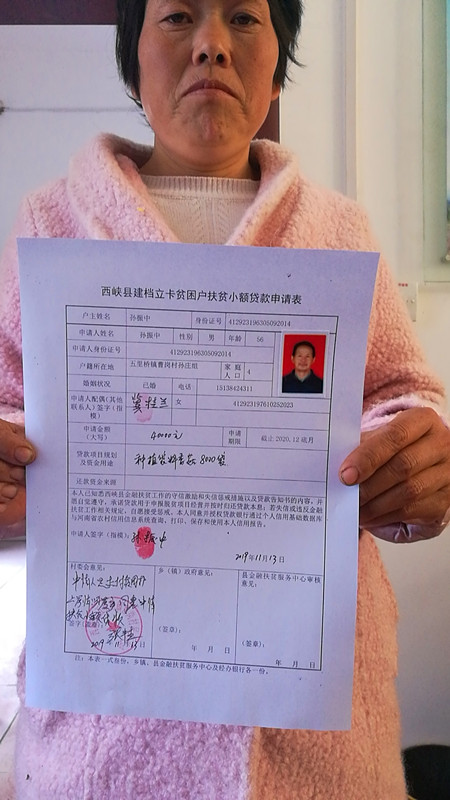 西峡县建档立卡贫困户扶贫小额贷款申请表
户主姓名 孙振中 身份证号 412923196305092014
申请人姓名 孙振中 性别 男 年龄 56
申请人身份证号 412923196305092014
户籍所在地 五里桥镇曹岗村孙庄组 家庭人口 4
婚姻状况 已婚 电话 15138424311
申请人配偶(其他联系人)签字(指模) 龚桂兰 女 412923197610252023
申请金额(大写) 40000元 申请期限 截止2020.12底月
贷款项目规划及资金用途 种植袋料香菇8000袋
还款资金来源
本人已知悉西峡县金融扶贫工作的守信激励和失信惩戒措施以及贷款告知书的内容,并
愿自觉遵守。承诺贷款用于申报脱贫项目经营并按时归还贷款本息;若失信或违反金融
扶贫工作相关规定,自愿接受惩戒。本人同意并授权贷款银行通过个人信用基础数据库
与河南省农村信用信息系统查询、打印、保存和使用本人信用报告。
申请人签字(指模): 孙振中
2019年11月13日
村委会意见:
乡(镇)政府意见:
县金融扶贫服务中心审核意见:
签字(盖章):
(签章):
(签章):
2019年11月13日
年 月 日
年 月 日
注:本表一式肆份,乡镇、县金融扶贫服务中心及经办银行各一份。